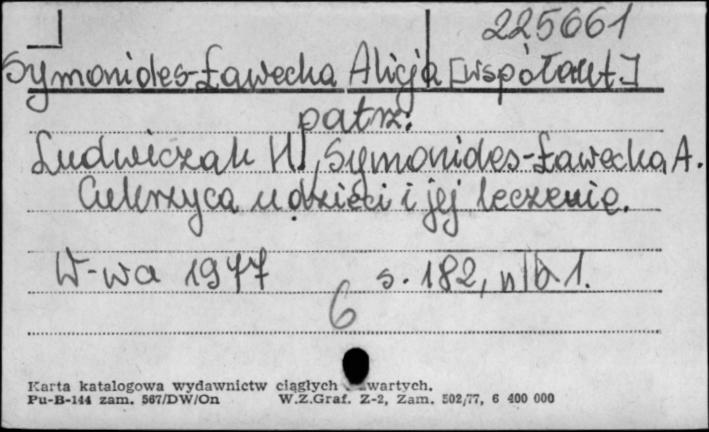 225661
Symonides-Ławecka Alicja [współaut]
patrz:
Ludwiczak H., Symonides-Ławecka A.
Cukrzyca u dzieci i jej leczenie.
W-wa 1977 s. 182, nlb 1.
6
Karta katalogowa wydawnictw ciągłych wartych.
Pu-B-144 zam. 567/DW/On W.Z.Graf. Z-2, Zam. 502/77, 6 400 000